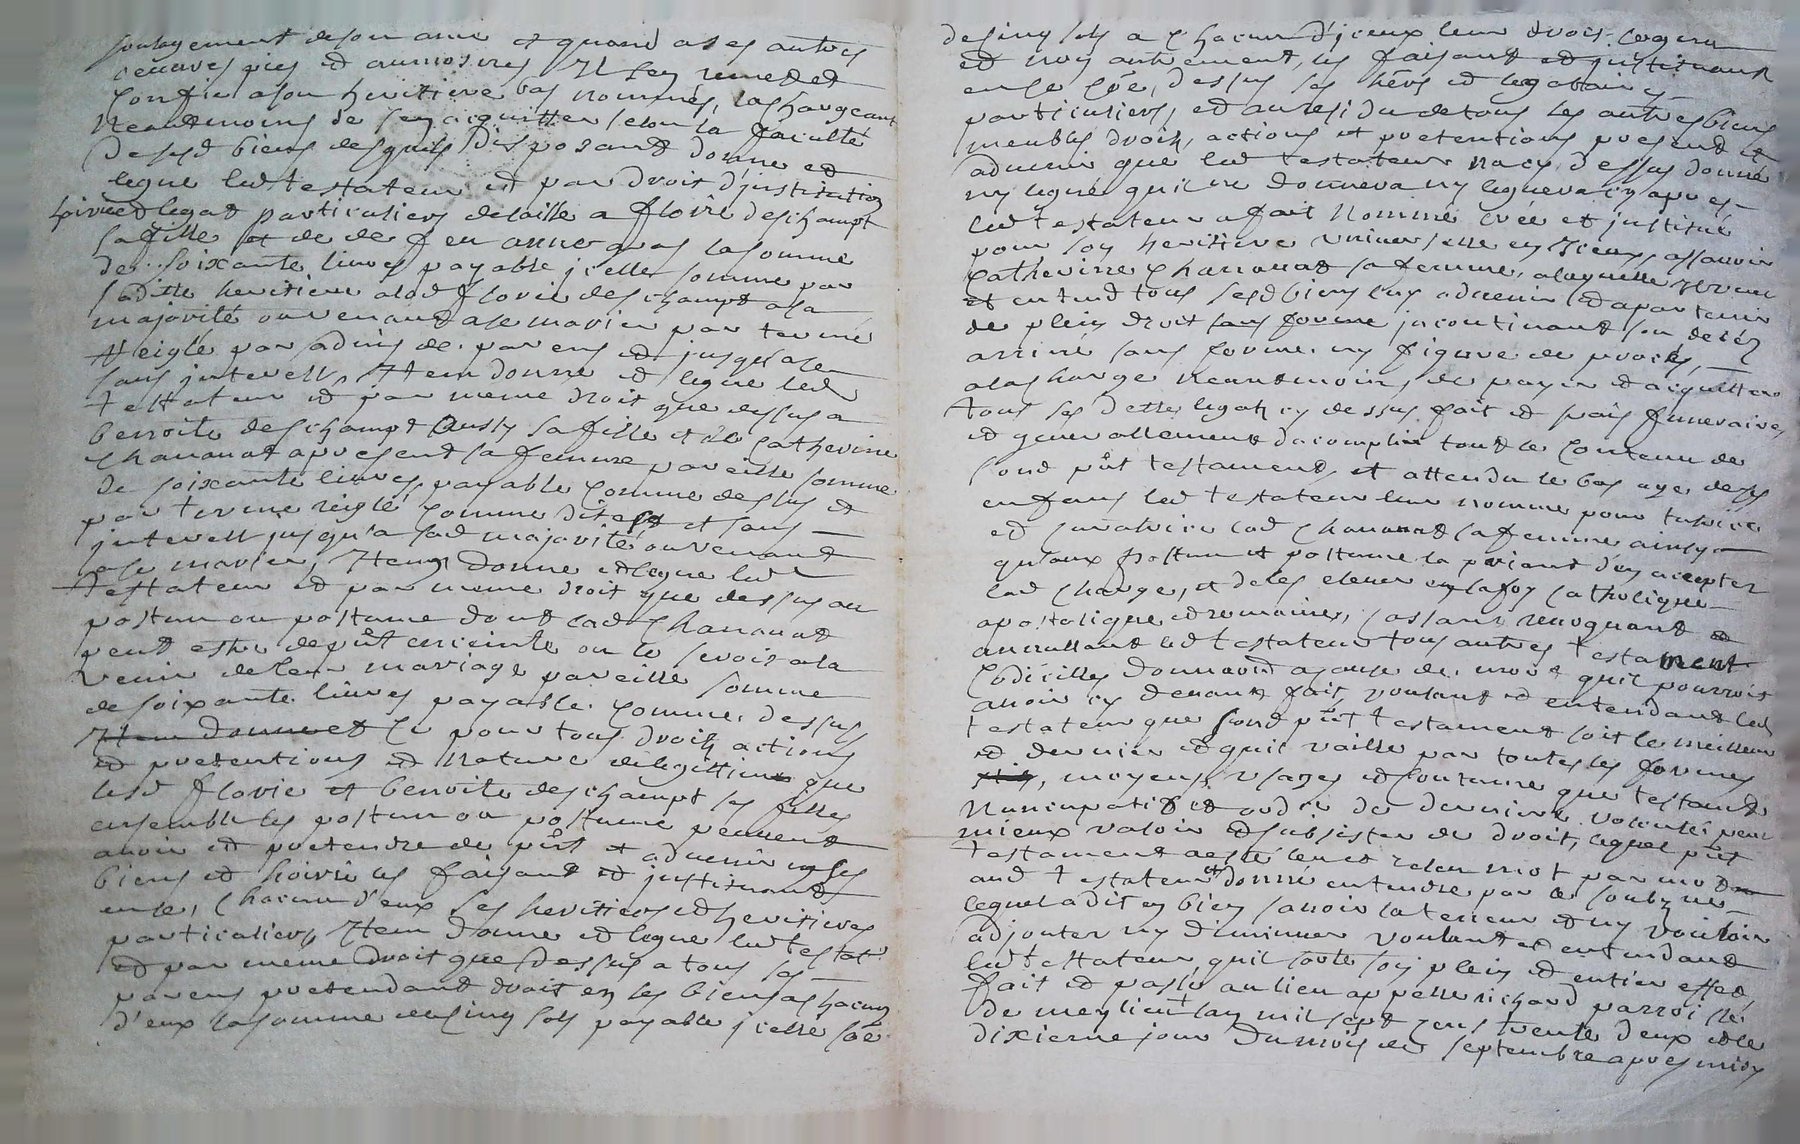 soulagement de son ame et quand a ses autres
oeuvres pies et aumosnes Il sen remet et
confie a son heritiere bas nommés, la chargeant
neantmoins de sen acquitter selon la faculté
de sesd biens desquels disposant donne et
legue led testateur et par droit d'institution
hoirie et legat particuliers delaisse a florie deschampt
sa fille et de def feu anne gras la somme
de soixante livres payable icelle somme par
sadite heritiere a lad florie deschampt a sa
majorité ou venant a se marier par terme
Reigle par advis de parens et jusqu'a ce
sans interest, Item donne et legue led
testateur et par meme droit que dessus a
benoite deschampt aussy sa fille et de catherine
Chananat apresent sa femme pareille somme
de soixante livres payable comme dessus et
par terme reigle comme dit est et sans
interest jusqu'a sad majorité ou venant
a se marier, Item donne et legue led
testateur et par meme droit que dessus au
postum ou postume dont lad Chananat
peut estre de pnt enceinte ou le seroit a la
venir de leur mariage pareille somme
de soixante livres payable comme dessus
Item donne et Ce pour tous droits actions
et pretentions et nature de legittime que
lesd florie et benoite deschampt ses filles
ensemble les postum ou postume peuvent
avoir et pretendre de pnt et advenir en ses
biens et hoirie les faisant et instituant
en ce, Chacun d'eux ses heritiers et heritieres
particuliers, Item donne et legue led testat
et par meme droit que dessus a tous ses
parens pretendant droit en ses biens a chacun
d'eux la somme de cinq sols payable icelle soe
de cinq sols a Chacun d'iceux leur droit
et non autrement, les faisant et instituant
en ce soe, dessus ses hers et legataires
particuliers, et au residu de tous ses autres biens
meubles droits, actions et pretentions present et
advenir que led testateur na cy dessus donné
ny legué quil ne donnera ny leguera cy apres
led testateur a fait nommé créé et institué
pour son heritiere universelle en iceux, assavoir
Catherine Chananat sa femme, a laquelle il veut
et entend tous sesd biens luy advenir et apartenir
de plein droit sans forme incontinant son deces
arrivé sans forme ny figure de proces,
a la charge neantmoins de payer et acquitter
tous ses dettes legats cy dessus fait et frais funeraires
et generallement dacomplir tout le contenu de
sond pnt testament, et attendu le bas age de ses
enfans led testateur leur nomme pour tutrice
et curatrice lad Chananat sa femme ainsy
qu'aux postum et postume la priant d'en accepter
lad charge, et de les elever en la foy catholique
apostolique et romaine, cassant revoquant et
annullant led testateur tous autres testament
Codicilles donnaon a cause de mort quil pourroit
avoir cy devant fait, voulant et entendant led
testateur que sond pnt testament soit le meilleur
et dernier et quil vaille par toutes les formes
moyens, usages et coutume que testament
Nuncupatif et ordre de derniere volonté peut
mieux valoir et subsister de droit, lequel pnt
testament a esté leu et releu mot par mot
aud testateur et donné entendre par le soubzné
lequel a dit en bien savoir la teneur et ny vouloir
adjouter ny diminuer voulant et entendant
led testateur quil sorte son plein et entier effet
fait et passé au lieu appellé richard parroisse
de meylieu lan mil sept cens trente deux et le
dixieme jour du mois de septembre apres midy